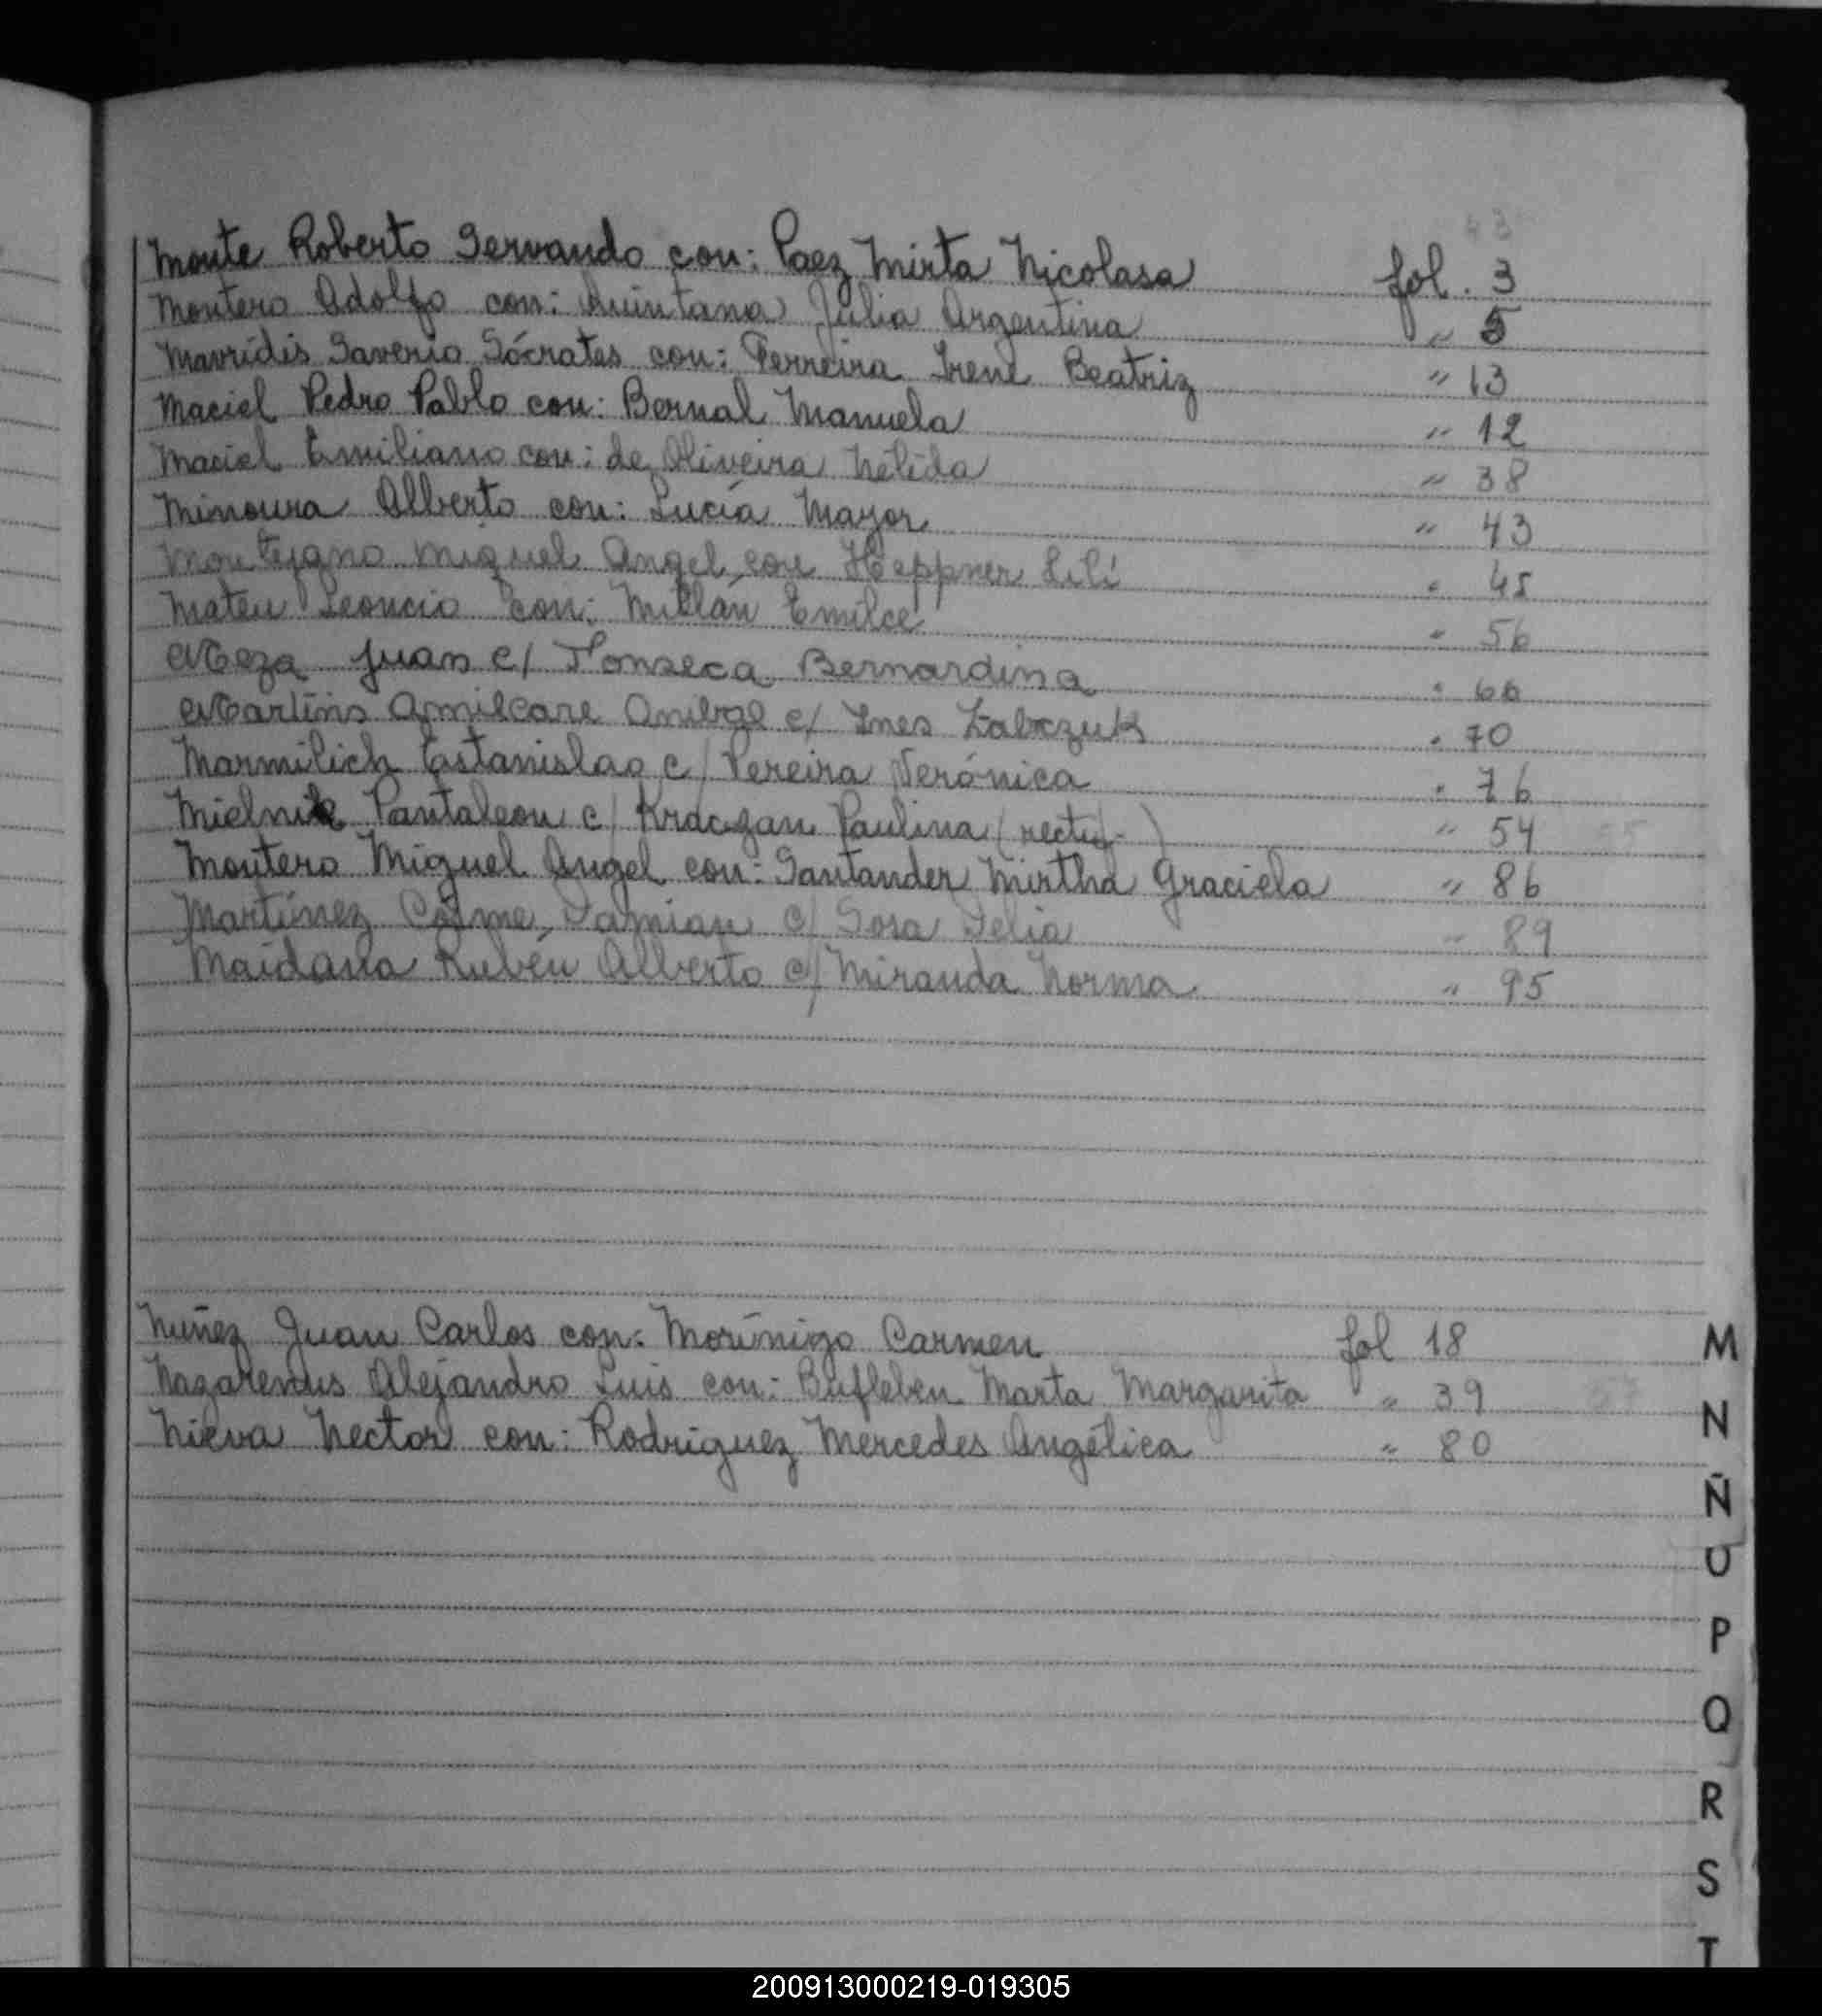 Monte Roberto Servando con: Paez Mirta Nicolasa fol. 3
Montero Adolfo con: Quintana Julia Argentina " 5
Mavridis Saverio Sócrates con: Ferreira Irene Beatriz " 13
Maciel Pedro Pablo con: Bernal Manuela " 12
Maciel Emiliano con: de Oliveira Nélida " 38
Minoura Alberto con: Lucía Mayor " 43
Miguel Angel con Heppner Lili " 45
Mateu Leoncio con: Millán Emilce " 56
Meza Juan c/ Fonseca Bernardina " 66
Martins Amilcare Anibal c/ Ines " 70
Marmilich Estanislao c/ Pereira Verónica " 76
Mielnik Pantaleon c/ Paulina " 54
Montero Miguel Angel con: Santander Mirtha Graciela " 86
Martínez Cosme Damian c/ Sosa Delia " 89
Maidana Ruben Alberto c/ Miranda Norma " 95
Nuñez Juan Carlos con: Morínigo Carmen fol 18
Nazarenus Alejandro Luis con: Bufleben Marta Margarita " 39
Nieva Hector con: Rodriguez Mercedes Angélica " 80
M
N
Ñ
O
P
Q
R
S
T
200913000219-019305